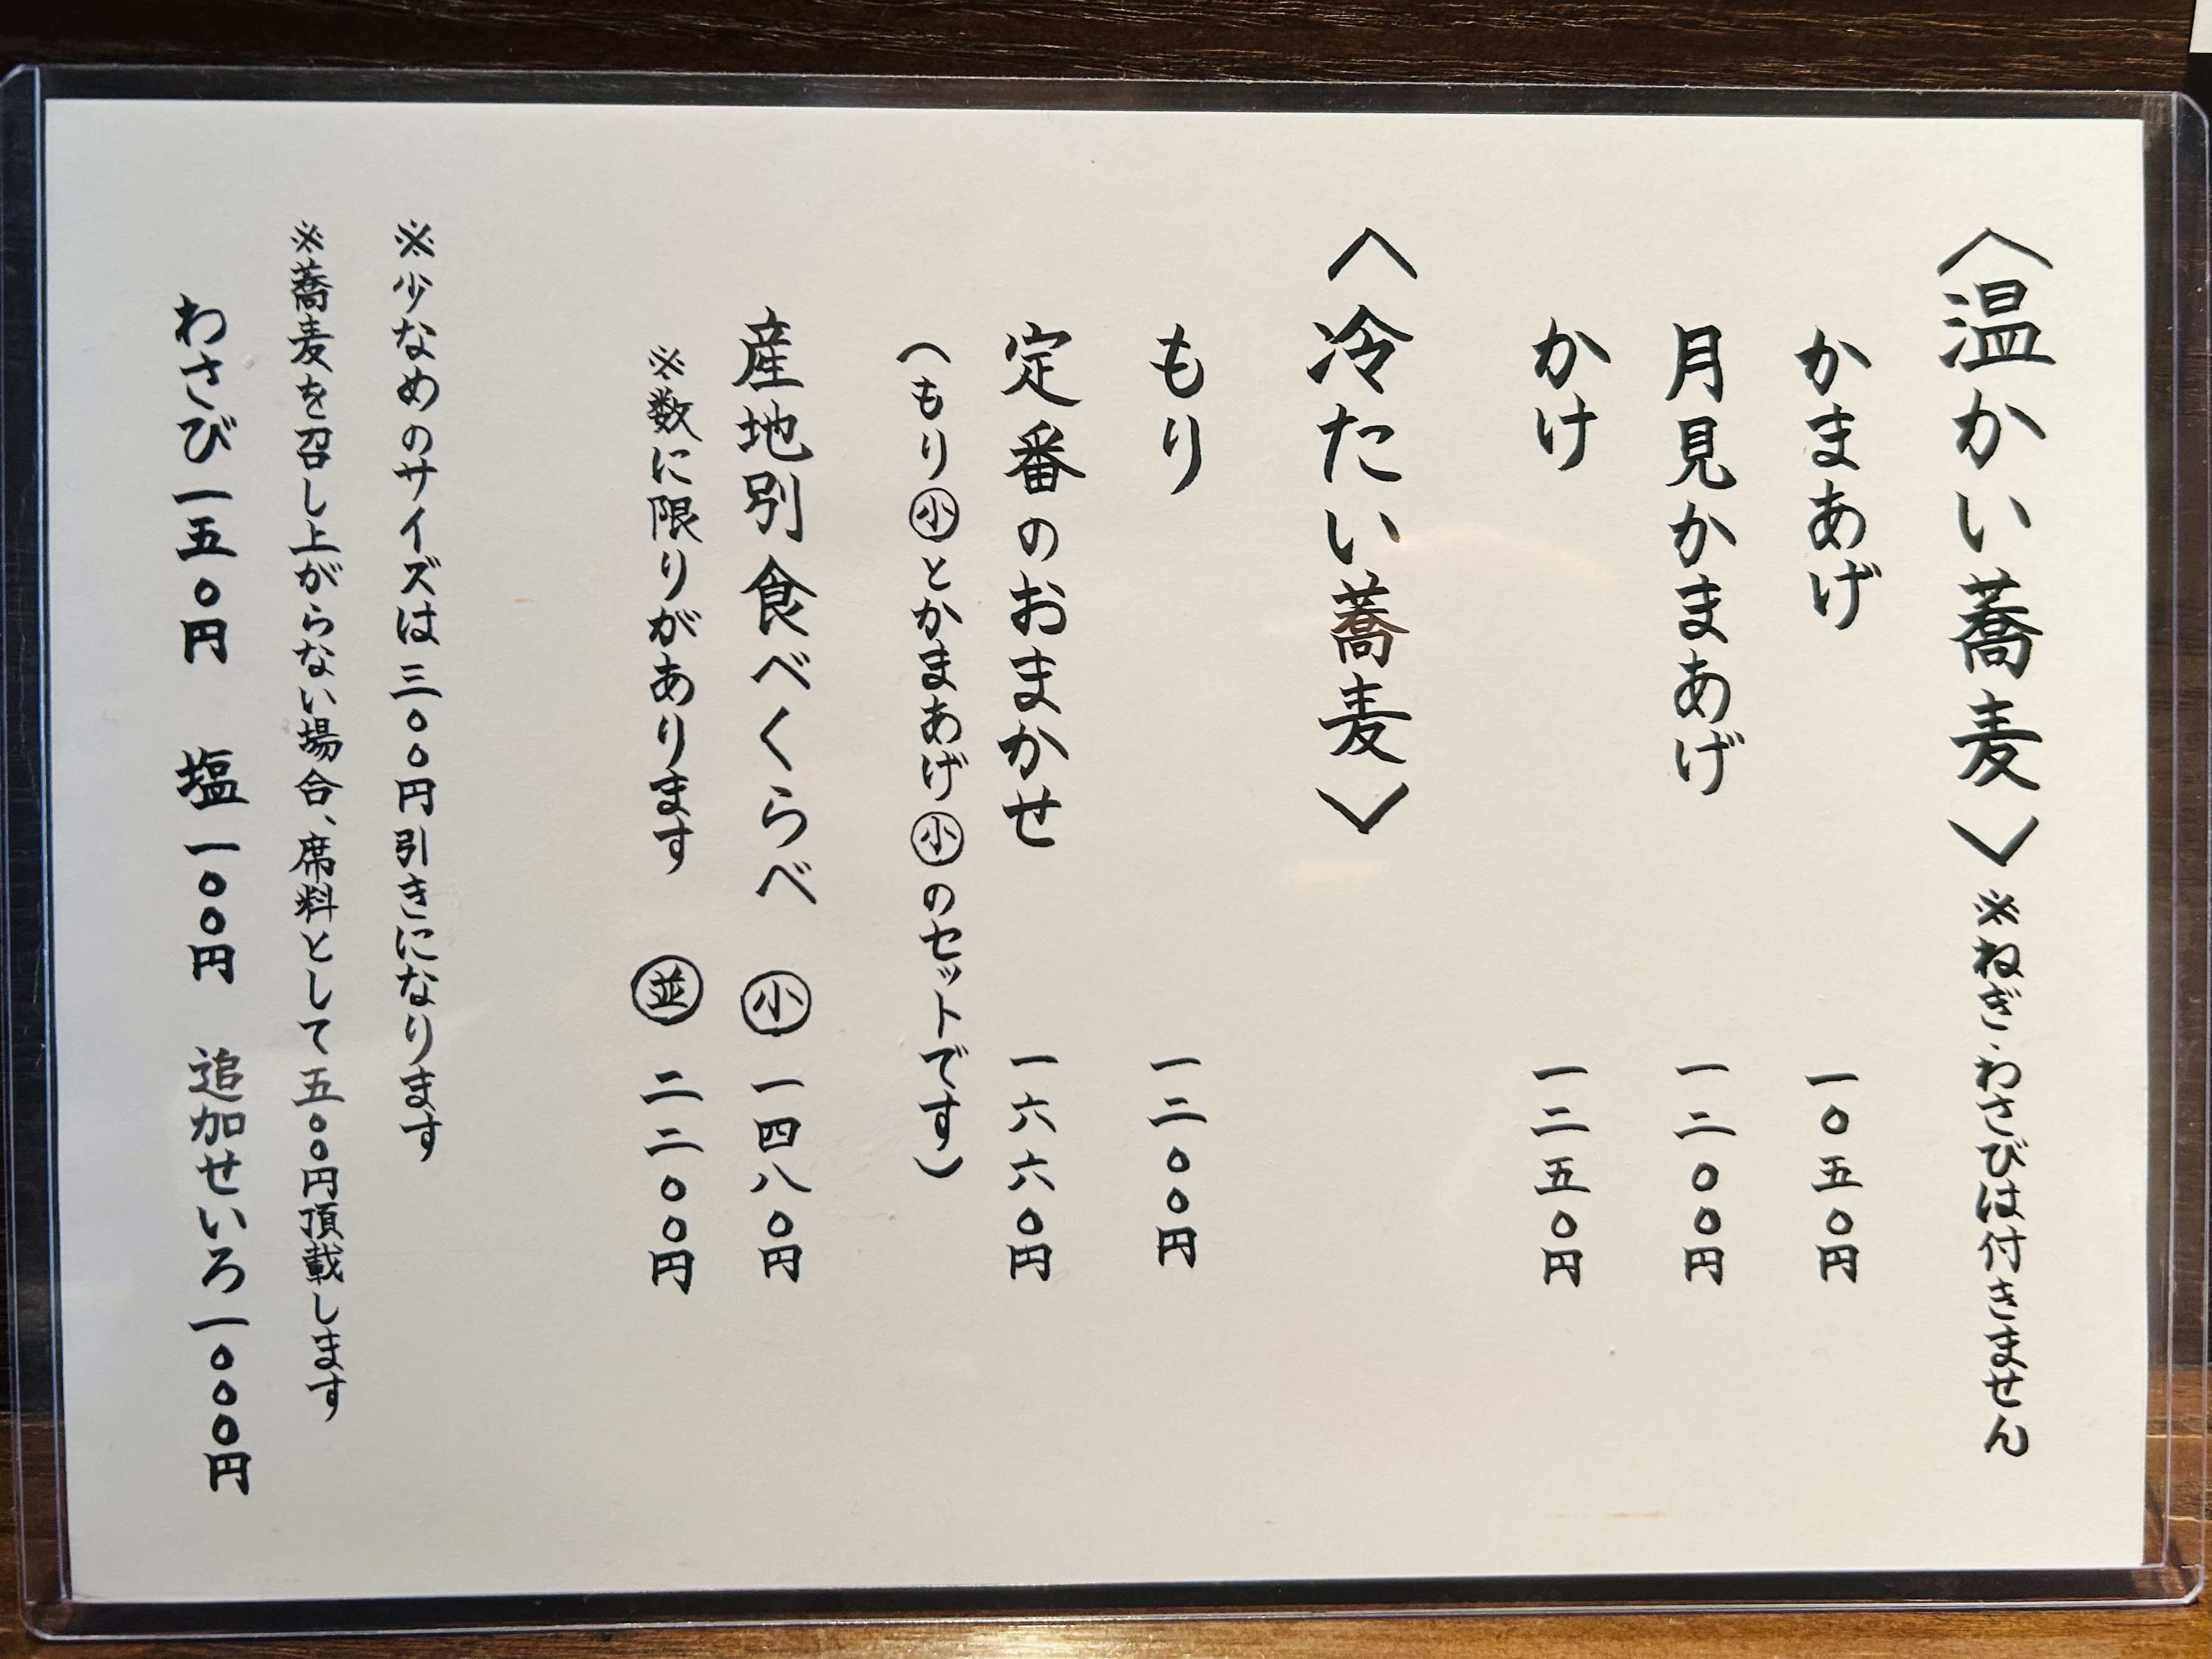 〈温かい蕎麦〉※ねぎ・わさびは付きません
かまあげ 一〇五〇円
月見かまあげ 一二〇〇円
かけ 一二五〇円
〈冷たい蕎麦〉
もり 一二〇〇円
定番のおまかせ 一六六〇円
(もり㊙とかまあげ㊙のセットです)
産地別食べくらべ ㊙ 一四八〇円
※数に限りがあります ㊙ 二二〇〇円
※少なめのサイズは三〇〇円引きになります
※蕎麦を召し上がらない場合、席料として五〇〇円頂載します
わさび一五〇円 塩一〇〇円 追加せいろ一〇〇〇円